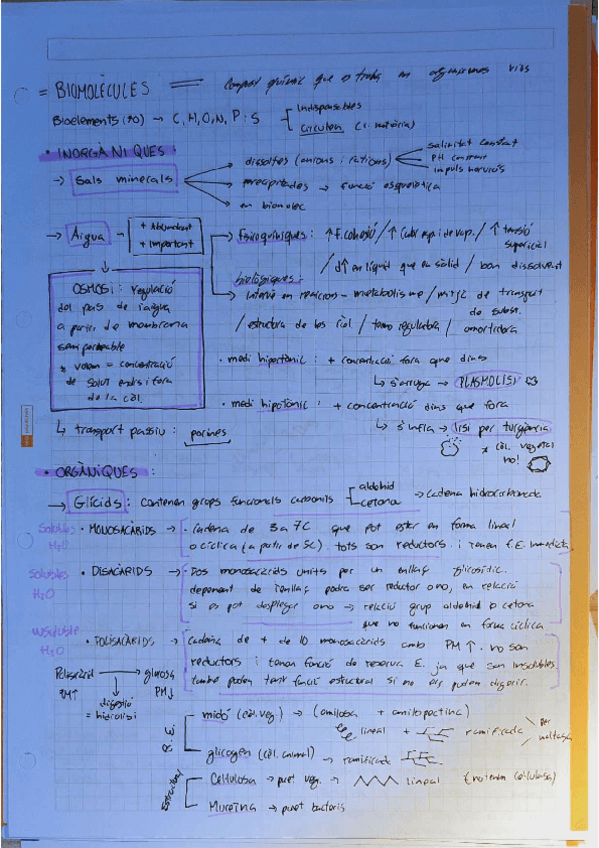 = BIOMOLÈCULES = compost químic que es troba en organismes vius
Bioelements (70) → C, H, O, N, P i S
Indispensables
Circulen (ci. matèria)
• INORGÀNIQUES:
→ Sals minerals
dissoltes (anions i cations)
salinitat constant
PH constant
impuls nerviós
precipitades → funció esquelètica
en biomolec
→ Aigua
+ Abundant
+ Important
Fisicoquímiques: ↑ F. cohesió / ↑ Calor esp. i de vap. / ↑ tensió superficial
/ d↑ en líquid que en sòlid / bon dissolvent
biològiques:
Intervé en reaccions - metabolisme / mitjà de transport de subst.
/ estructura de les cèl / termoreguladora / amortidora
OSMOSI: regulació
del pas de l'aigua
a partir de membrana
semipermeable
* volem = concentració
de solut endis i fora
de la cèl.
• medi hipertònic: + concentració fora que dins
↳ s'arruga → PLASMOLISI
• medi hipotònic: + concentració dins que fora
↳ s'infla → lisi per turgència
* cèl. vegetal no!
↳ transport passiu: porines
• ORGÀNIQUES:
→ Glícids: contenen grups funcionals carbonils
aldehid
cetona
→ cadena hidrocarbonada
Solubles H2O
• MONOSACÀRIDS → • Cadena de 3 a 7C que pot estar en forma lineal
o cíclica (a partir de 5C). tots son reductors. i tenen f.E. immediata.
Solubles H2O
• DISACÀRIDS → • Dos monosacàrids units per un enllaç glicosídic.
depenent de l'enllaç podrà ser reductor o no, en relació
si es pot desplegar o no → relació grup aldehid o cetona
que no funcionen en forma cíclica
Insoluble H2O
• POLISACÀRIDS → • Cadena de + de 10 monosacàrids amb PM ↑. no son
reductors i tenen funció de reserva E. ja que son insolubles.
també poden tenir funció estructural si no es poden digerir.
Polisacàrid → glucosa
PM↑ PM↓
digestió
= hidròlisi
R.E.
midó (cèl. veg.) → (amilosa + amilopectina)
lineal + ramificada
per maltasa
glicogen (cèl. animal) → ramificada
Estructural
Cellulosa → paret veg. → lineal (no tenim cellulasa)
Mureïna → paret bacteris